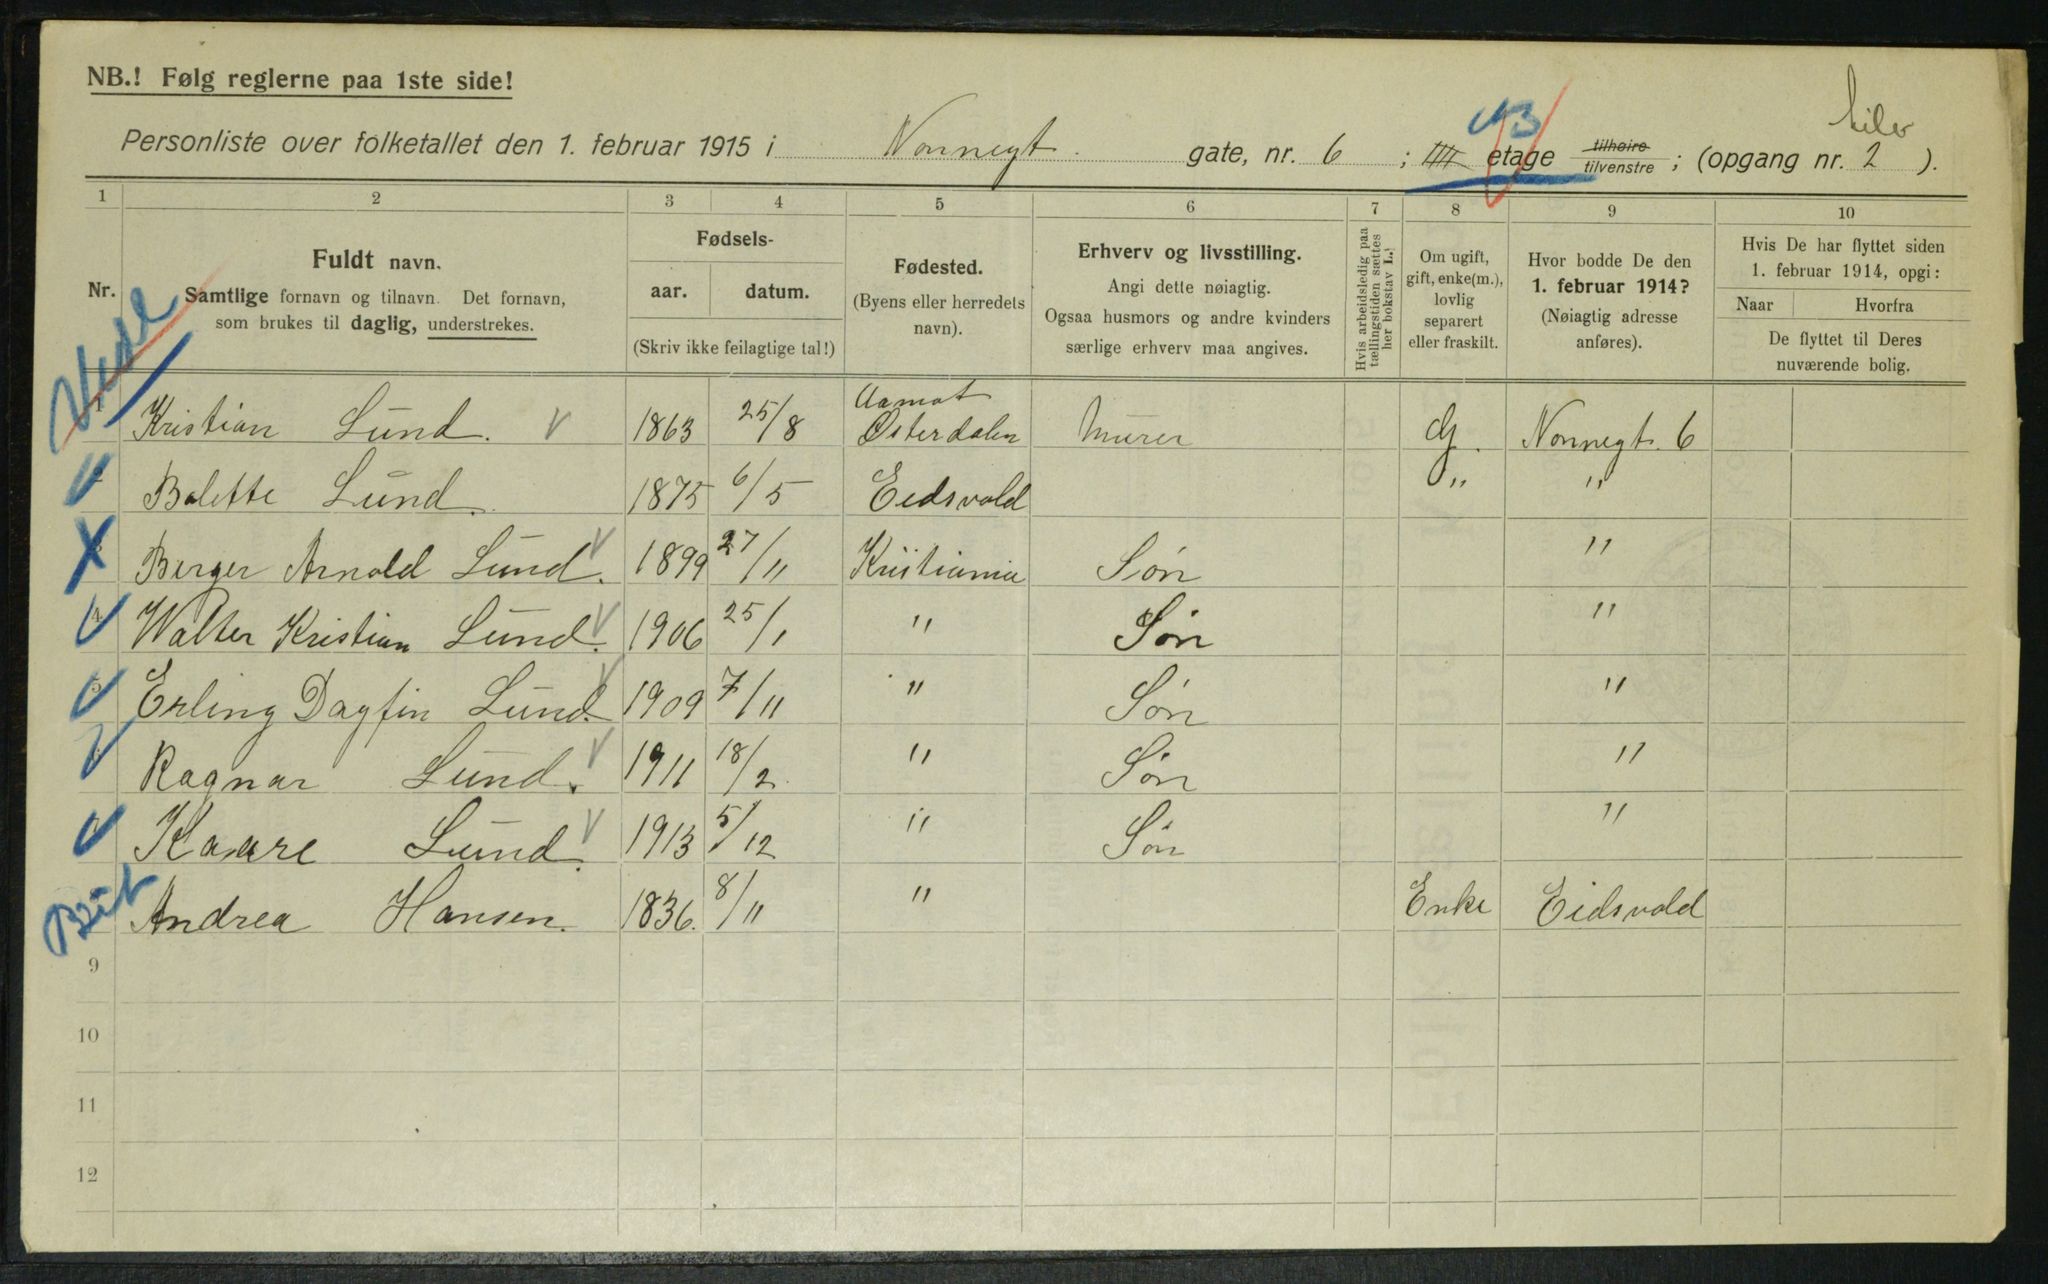 NB.! Følg reglerne paa 1ste side!
Personliste over folketallet den 1. februar 1915 i Nonnegt. gate, nr. 6 ; etage tilhøire tilvenstre ; (opgang nr. 2 ).
1 2 3 4 5 6 7 8 9 10
Nr.
Fuldt navn.
Samtlige fornavn og tilnavn. Det fornavn,
som brukes til daglig, understrekes.
Fødsels-
aar. datum.
(Skriv ikke feilagtige tal!)
Fødested.
(Byens eller herredets
navn).
Erhverv og livsstilling.
Angi dette nøiagtig.
Ogsaa husmors og andre kvinders
særlige erhverv maa angives.
Hvis arbeidsledig paa
tællingstiden sættes
her bokstav L.
Om ugift,
gift, enke(m.),
lovlig
separert
eller fraskilt.
Hvor bodde De den
1. februar 1914?
(Nøiagtig adresse
anføres).
Hvis De har flyttet siden
1. februar 1914, opgi:
Naar Hvorfra
De flyttet til Deres
nuværende bolig.
1 Kristian Lund. 1863 25/8 Aamot Østerdalen Murer G. Nonnegt. 6
2 Balette Lund. 1875 6/5 Eidsvold " "
3 Berger Arnold Lund. 1899 27/11 Kristiania Søn "
4 Walter Kristian Lund. 1906 25/1 " Søn "
5 Erling Dagfin Lund. 1909 7/11 " Søn "
Ragnar Lund. 1911 18/2 " Søn "
Kaare Lund. 1913 5/12 " Søn "
Andrea Hansen. 1836. 8/11 " Enke Eidsvold
9
10
11
12